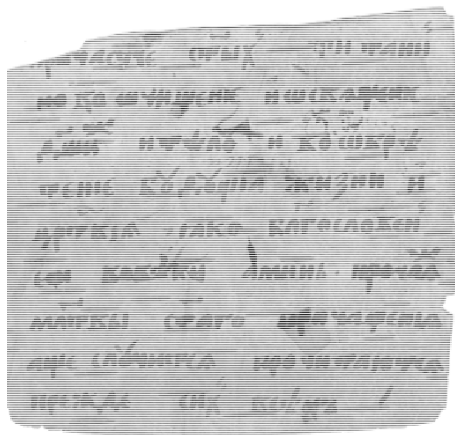 причастие стых ти таин
но во ѡчищение и ѡсвящение
дши и тѣло и во ѡбрѣ
тение будущїꙗ жизни и
црствїꙗ ꙗко благословен
еси вовѣки аминь · прочаꙗ
млтвы стаго причащенїꙗ
аще случится прочитаются
прежде сих